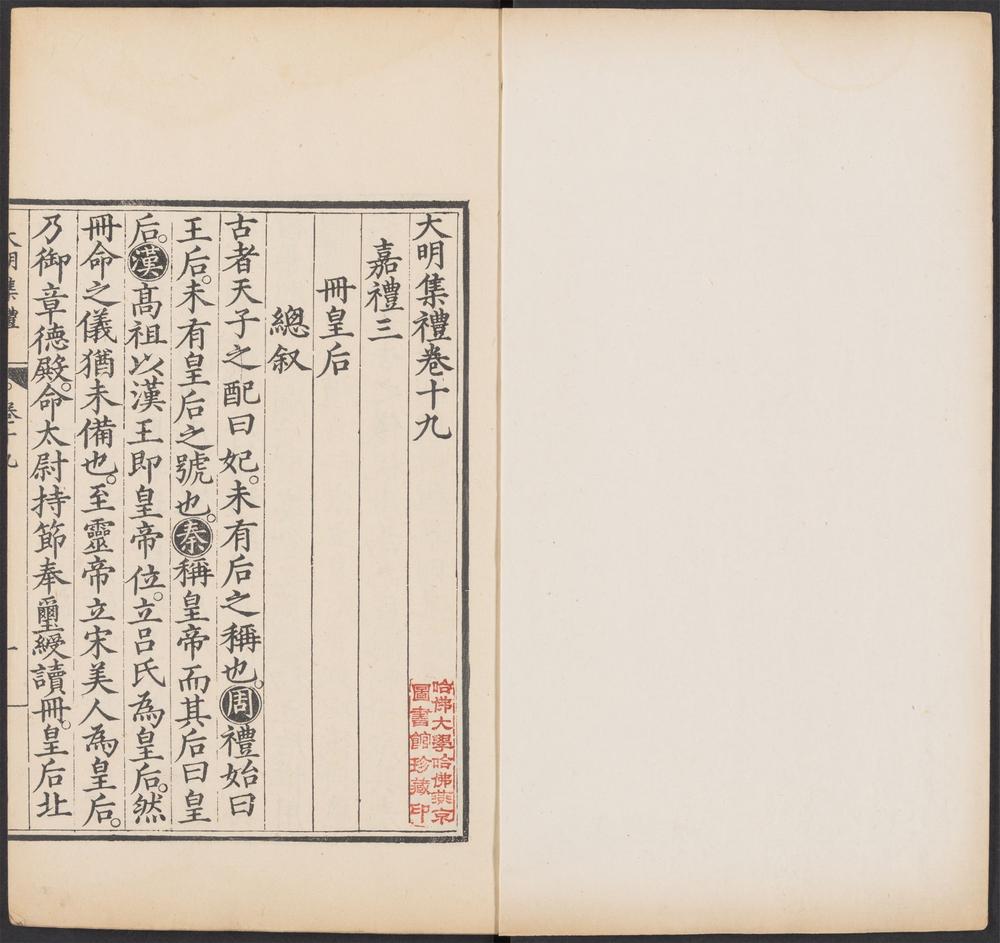 大明集禮卷十九
嘉禮三
冊皇后
總叙
古者天子之配曰妃。未有后之稱也。周禮始曰
王后。未有皇后之號也。秦稱皇帝而其后曰皇
后。漢高祖以漢王即皇帝位。立呂氏為皇后。然
冊命之儀猶未備也。至靈帝立宋美人為皇后。
乃御章德殿。命太尉持節奉璽綬讀冊。皇后北
大明集禮
卷十九
一
哈佛大學哈佛燕京
圖書館珍藏印